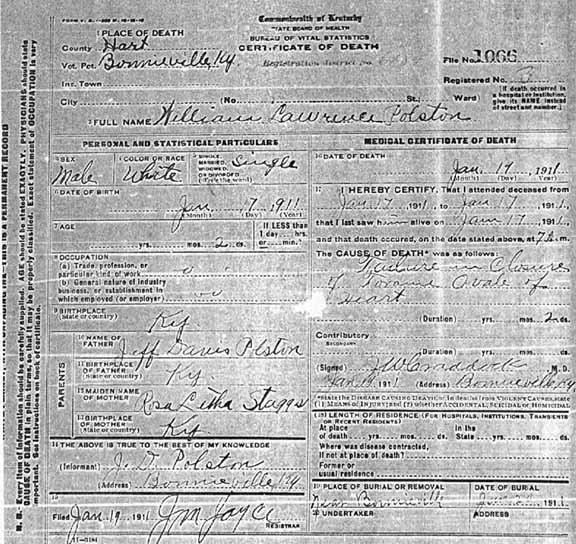 Commonwealth of Kentucky
STATE BOARD OF HEALTH
BUREAU OF VITAL STATISTICS
CERTIFICATE OF DEATH
1 PLACE OF DEATH
County Hart
Vot. Pct. Bonnieville, Ky
Registration District No.
File No. 1066
Registered No. 2
Inc. Town
City (No. St., Ward)
(If death occurred in a hospital or institution, give its NAME instead of street and number.)
2 FULL NAME William Lawrence Polston
PERSONAL AND STATISTICAL PARTICULARS
3 SEX Male
4 COLOR OR RACE White
5 SINGLE, MARRIED, WIDOWED OR DIVORCED (Write the word) Single
6 DATE OF BIRTH
Jan 17 1911
(Month) (Day) (Year)
7 AGE
yrs. mos. 2 ds.
If LESS than 1 day, hrs. or min.?
8 OCCUPATION
(a) Trade, profession, or particular kind of work
(b) General nature of industry business, or establishment in which employed (or employer)
9 BIRTHPLACE (State or country) Ky
PARENTS
10 NAME OF FATHER Jeff Davis Polston
11 BIRTHPLACE OF FATHER (State or country) Ky
12 MAIDEN NAME OF MOTHER Rosa Letha Staggs
13 BIRTHPLACE OF MOTHER (State or country) Ky
14 THE ABOVE IS TRUE TO THE BEST OF MY KNOWLEDGE
(Informant) J. D. Polston
(Address) Bonnieville, Ky.
15
Filed Jan 19 1911 J M Joyce
REGISTRAR
MEDICAL CERTIFICATE OF DEATH
16 DATE OF DEATH
Jan. 17, 1911
(Month) (Day) (Year)
17 I HEREBY CERTIFY, That I attended deceased from
Jan 17, 1911, to Jan 17, 1911,
that I last saw him alive on Jan 17, 1911,
and that death occurred, on the date stated above, at 7 m.
The CAUSE OF DEATH* was as follows:
Failure in Closure
of Foramen Ovale of
Heart
(Duration) yrs. mos. 2 ds.
Contributory
SECONDARY
(Duration) yrs. mos. ds.
(Signed) J W Craddock M.D.
Jan 19 1911 (Address) Bonnieville, Ky
*State the DISEASE CAUSING DEATH, or, in deaths from VIOLENT CAUSES, state (1) MEANS OF INJURY; and (2) whether ACCIDENTAL, SUICIDAL or HOMICIDAL.
18 LENGTH OF RESIDENCE (FOR HOSPITALS, INSTITUTIONS, TRANSIENTS OR RECENT RESIDENTS)
At place of death yrs. mos. ds. In the State yrs. mos. ds.
Where was disease contracted, if not at place of death?
Former or usual residence
19 PLACE OF BURIAL OR REMOVAL
DATE OF BURIAL
Near Bonnieville
1911
20 UNDERTAKER
ADDRESS